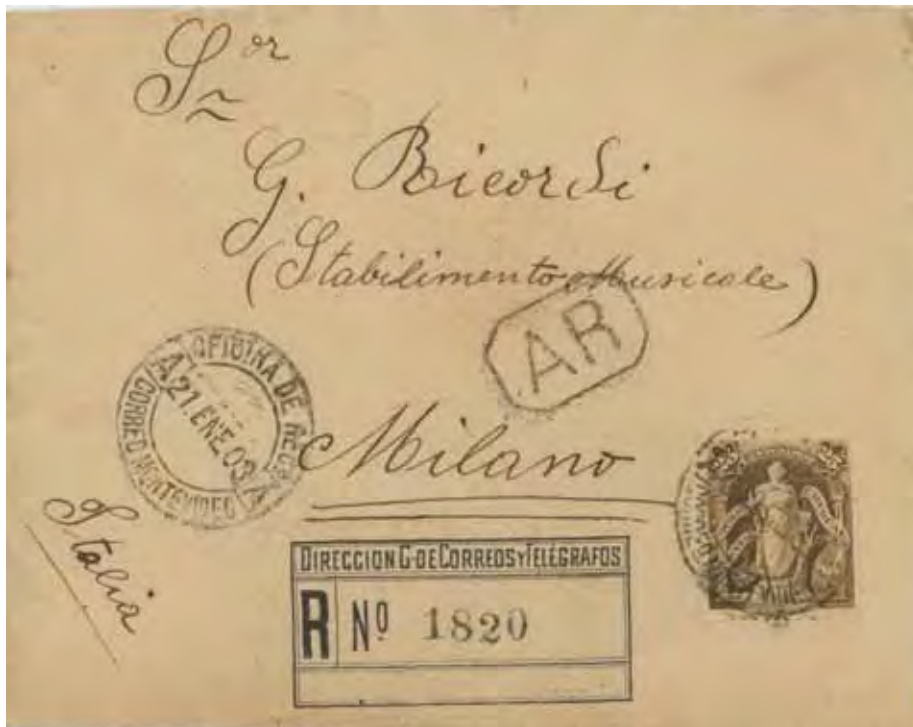 Sor
G. Ricordi
(Stabilimento Musicale)
AR
OFICINA DE
21 ENE 03
CORREO MONTEVIDEO
A
Milano
Italia
DIRECCION G. DE CORREOS Y TELÉGRAFOS
R Nº 1820